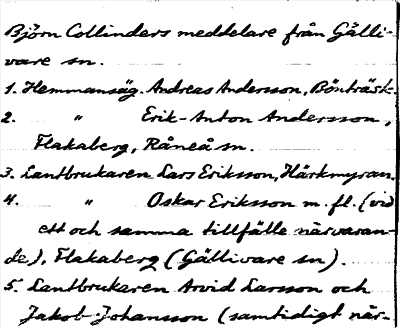 Björn Collinders meddelare från Gälli-
vare sn.
1. Hemmansäg. Andreas Andersson, Bönträsk.
2. " Erik-Anton Andersson,
Flakaberg, Råneå sn.
3. Lantbrukaren Lars Eriksson, Härkmyran.
4. " Oskar Eriksson m. fl. (vid
ett och samma tillfälle närvaran-
de), Flakaberg (Gällivare sn).
5. Lantbrukaren Arvid Larsson och
Jakob Johansson (samtidigt när-